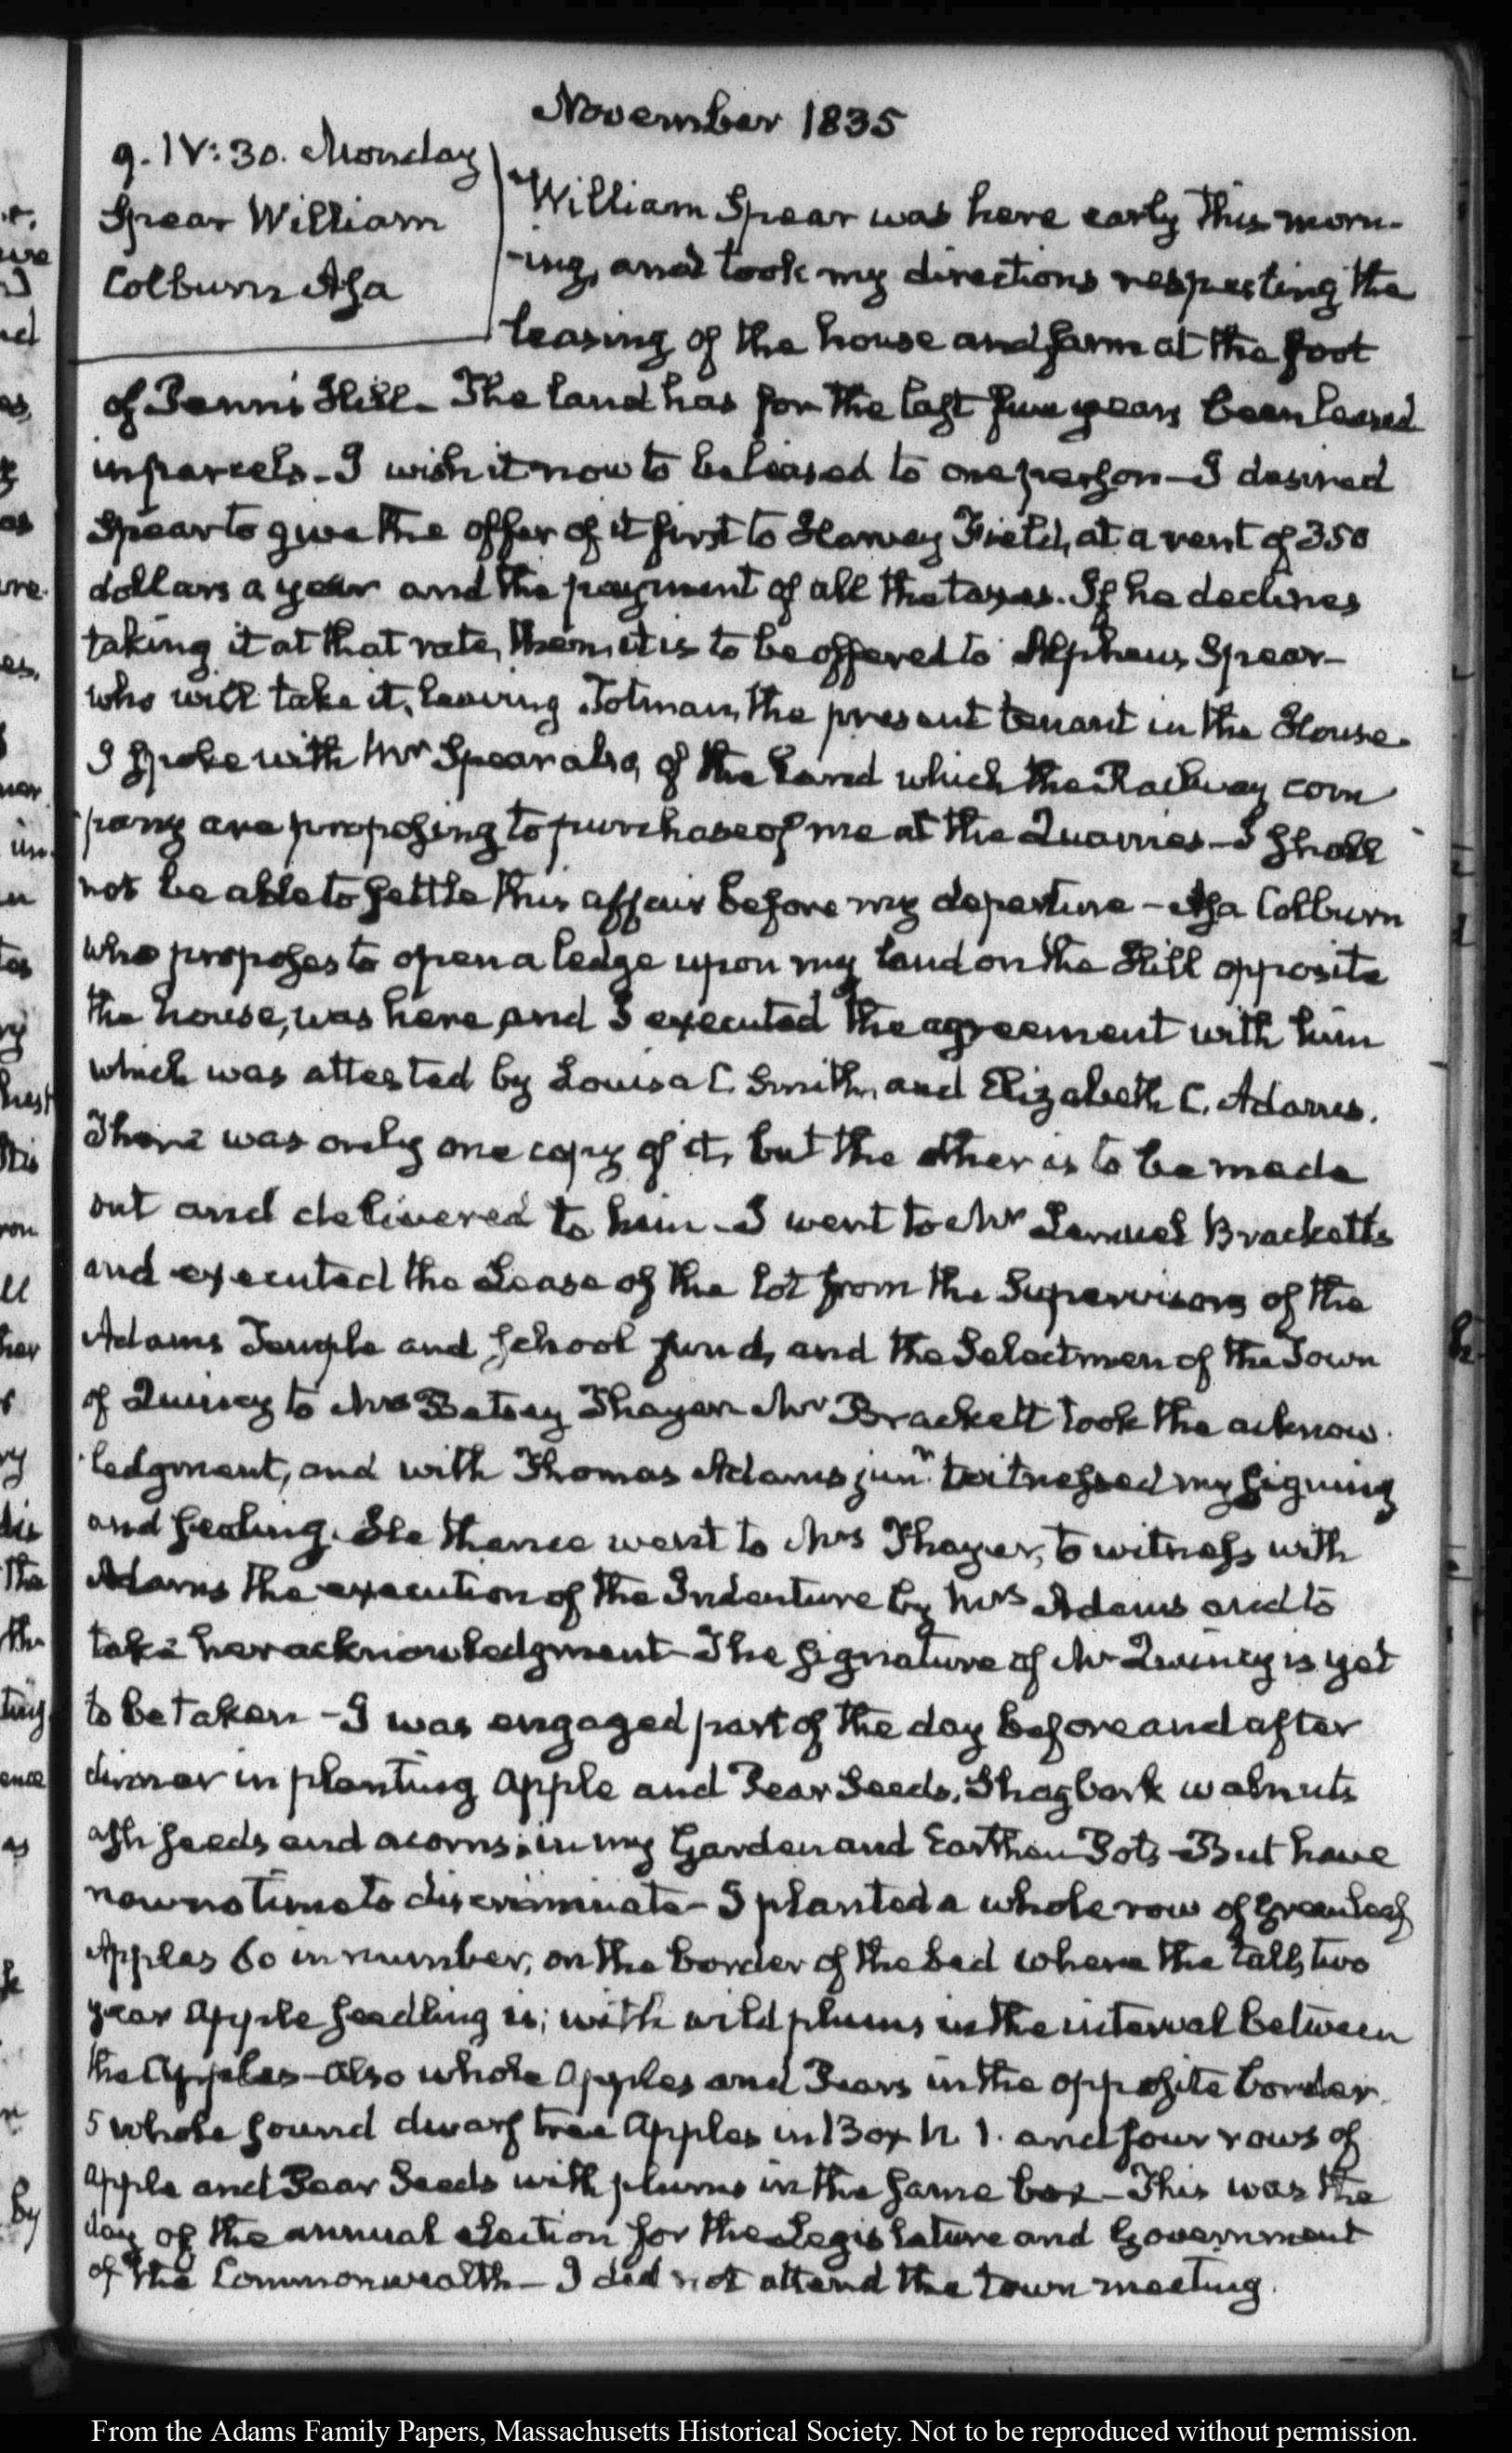 November 1835
9. IV:30. Monday
Spear William
Colburn Asa
William Spear was here early this morn-
-ing, and took my directions respecting the
leasing of the house and farm at the foot
of Penn's Hill - The land has for the last few years been leased
in parcels - I wish it now to be leased to one person - I desired
Spear to give the offer of it first to Harvey Field, at a rent of 350
dollars a year and the payment of all the taxes. If he declines
taking it at that rate, then it is to be offered to Alpheus Spear -
who will take it, leaving Totman, the present tenant in the House.
I spoke with Mr Spear also, of the Land which the Railway com
pany are proposing to purchase of me at the Quarries - I shall
not be able to settle this affair before my departure - Asa Colburn
who proposes to open a ledge upon my land on the Hill opposite
the house, was here, and I executed the agreement with him
which was attested by Louisa C. Smith, and Elizabeth C. Adams.
There was only one copy of it, but the other is to be made
out and delivered to him - I went to Mr Lemuel Bracketts
and executed the Lease of the lot from the Supervisors of the
Adams Temple and School fund, and the Selectmen of the Town
of Quincy to Mrs Betsey Thayer. Mr Brackett took the acknow-
-ledgment, and with Thomas Adams junr. witnessed my signing
and sealing. He thence went to Mrs Thayer, to witness with
Adams the execution of the Indenture by Mrs Adams and to
take her acknowledgment - The signature of Mr Quincy is yet
to be taken - I was engaged part of the day before and after
dinner in planting Apple and Pear Seeds, Shagbark walnuts
ash seeds and acorns; in my Garden and Earthen Pots - But have
now no time to discriminate - I planted a whole row of Greenleaf
Apples 60 in number, on the border of the bed where the tall, two
year Apple seedling is; with wild plums in the interval between
the Apples - Also whole Apples and Pears in the opposite border.
5 whole sound dwarf tree Apples in Box N. 1. and four rows of
Apple and Pear Seeds with plums in the same box - This was the
day of the annual election for the Legislature and Government
of the Commonwealth - I did not attend the town meeting.
From the Adams Family Papers, Massachusetts Historical Society. Not to be reproduced without permission.